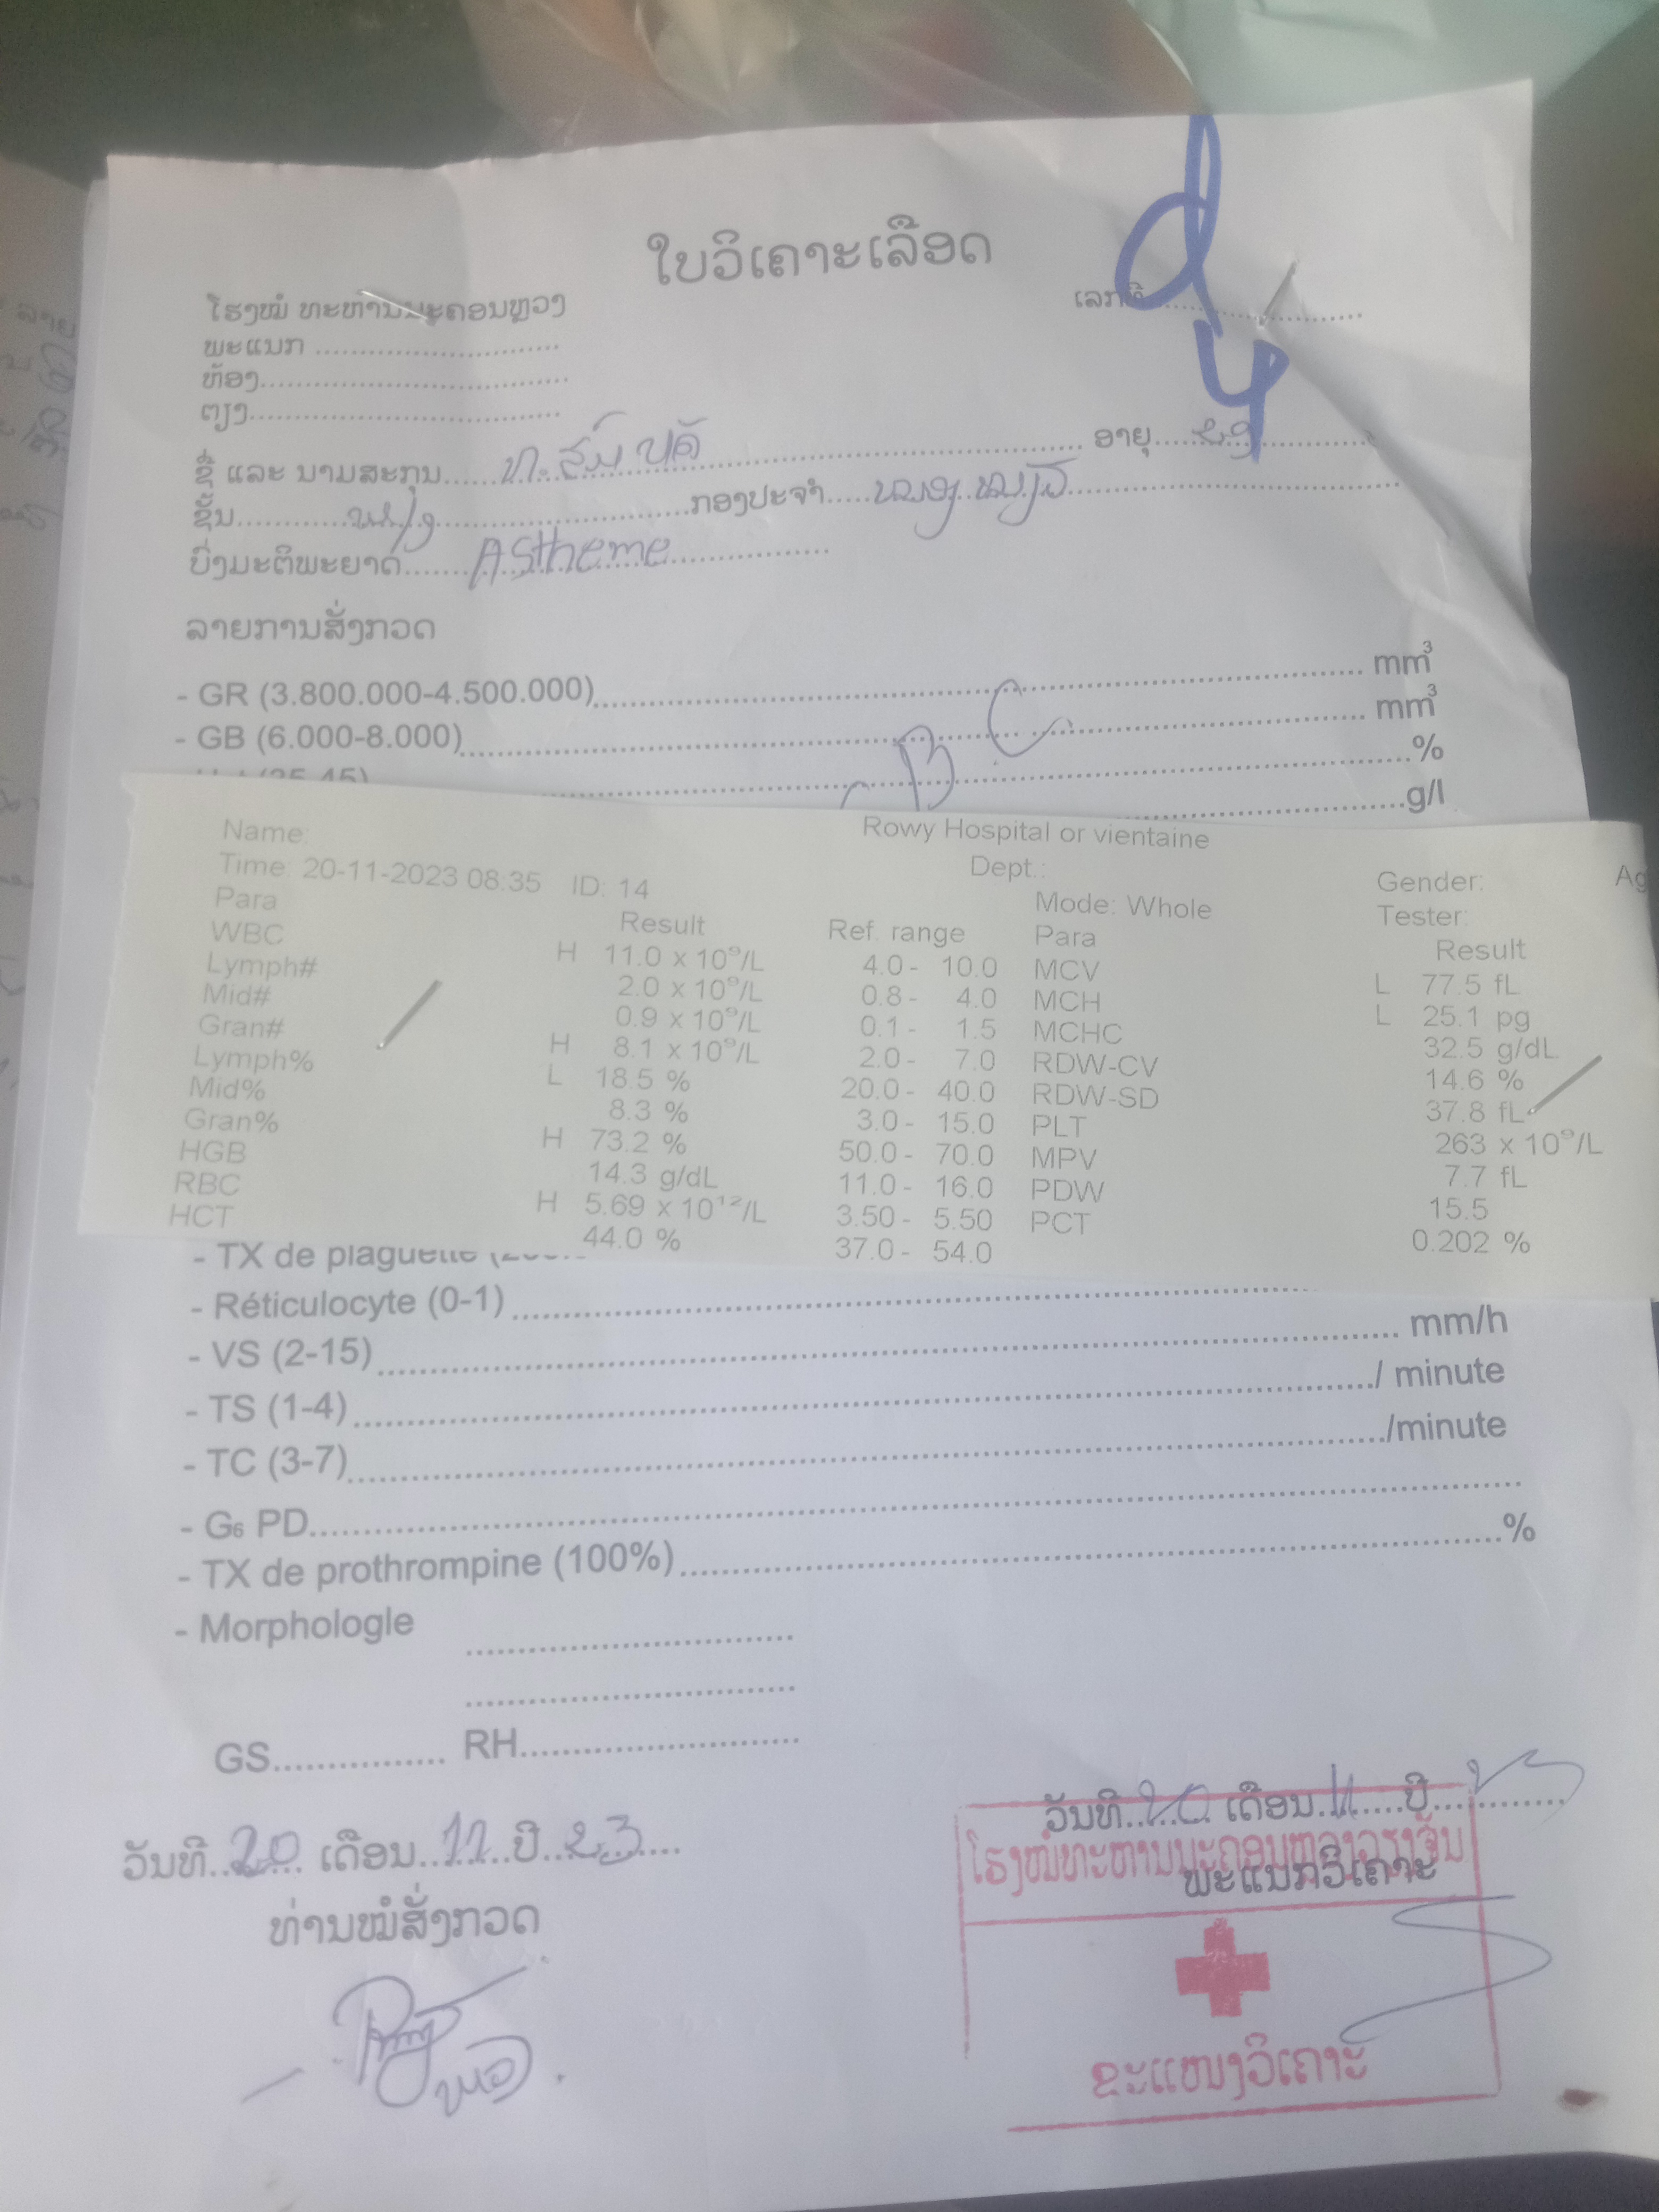 ໃບວິເຄາະເລືອດ
ໂຮງໝໍ ທະຫານນະຄອນຫຼວງ
ເລກທີ
ພະແນກ
ຫ້ອງ
ຕຽງ
ຊື່ ແລະ ນາມສະກຸນ ທ. ສົມ ບັດ ອາຍຸ
ຊັ້ນ ກອງປະຈຳ
ບົ່ງມະຕິພະຍາດ Astheme
ລາຍການສັ່ງກວດ
- GR (3.800.000-4.500.000) mm³
- GB (6.000-8.000) mm³
%
g/l
Rowy Hospital or vientaine
Name: Dept.: Gender:
Time: 20-11-2023 08:35 ID: 14 Mode: Whole Tester:
Para Result Ref. range Para Result
WBC H 11.0 x 10⁹/L 4.0 - 10.0 MCV L 77.5 fL
Lymph# 2.0 x 10⁹/L 0.8 - 4.0 MCH L 25.1 pg
Mid# 0.9 x 10⁹/L 0.1 - 1.5 MCHC 32.5 g/dL
Gran# H 8.1 x 10⁹/L 2.0 - 7.0 RDW-CV 14.6 %
Lymph% L 18.5 % 20.0 - 40.0 RDW-SD 37.8 fL
Mid% 8.3 % 3.0 - 15.0 PLT 263 x 10⁹/L
Gran% H 73.2 % 50.0 - 70.0 MPV 7.7 fL
HGB 14.3 g/dL 11.0 - 16.0 PDW 15.5
RBC H 5.69 x 10¹²/L 3.50 - 5.50 PCT 0.202 %
HCT 44.0 % 37.0 - 54.0
- TX de plaguette
- Réticulocyte (0-1)
- VS (2-15) mm/h
- TS (1-4) / minute
- TC (3-7) /minute
- G6 PD
- TX de prothrompine (100%) %
- Morphologle
GS RH
ວັນທີ 20 ເດືອນ 11 ປີ 23
ທ່ານໝໍສັ່ງກວດ
ວັນທີ 20 ເດືອນ 11 ປີ
ພະແນກວິເຄາະ
ໂຮງໝໍທະຫານນະຄອນຫຼວງວຽງຈັນ
ຂະແໜງວິເຄາະ